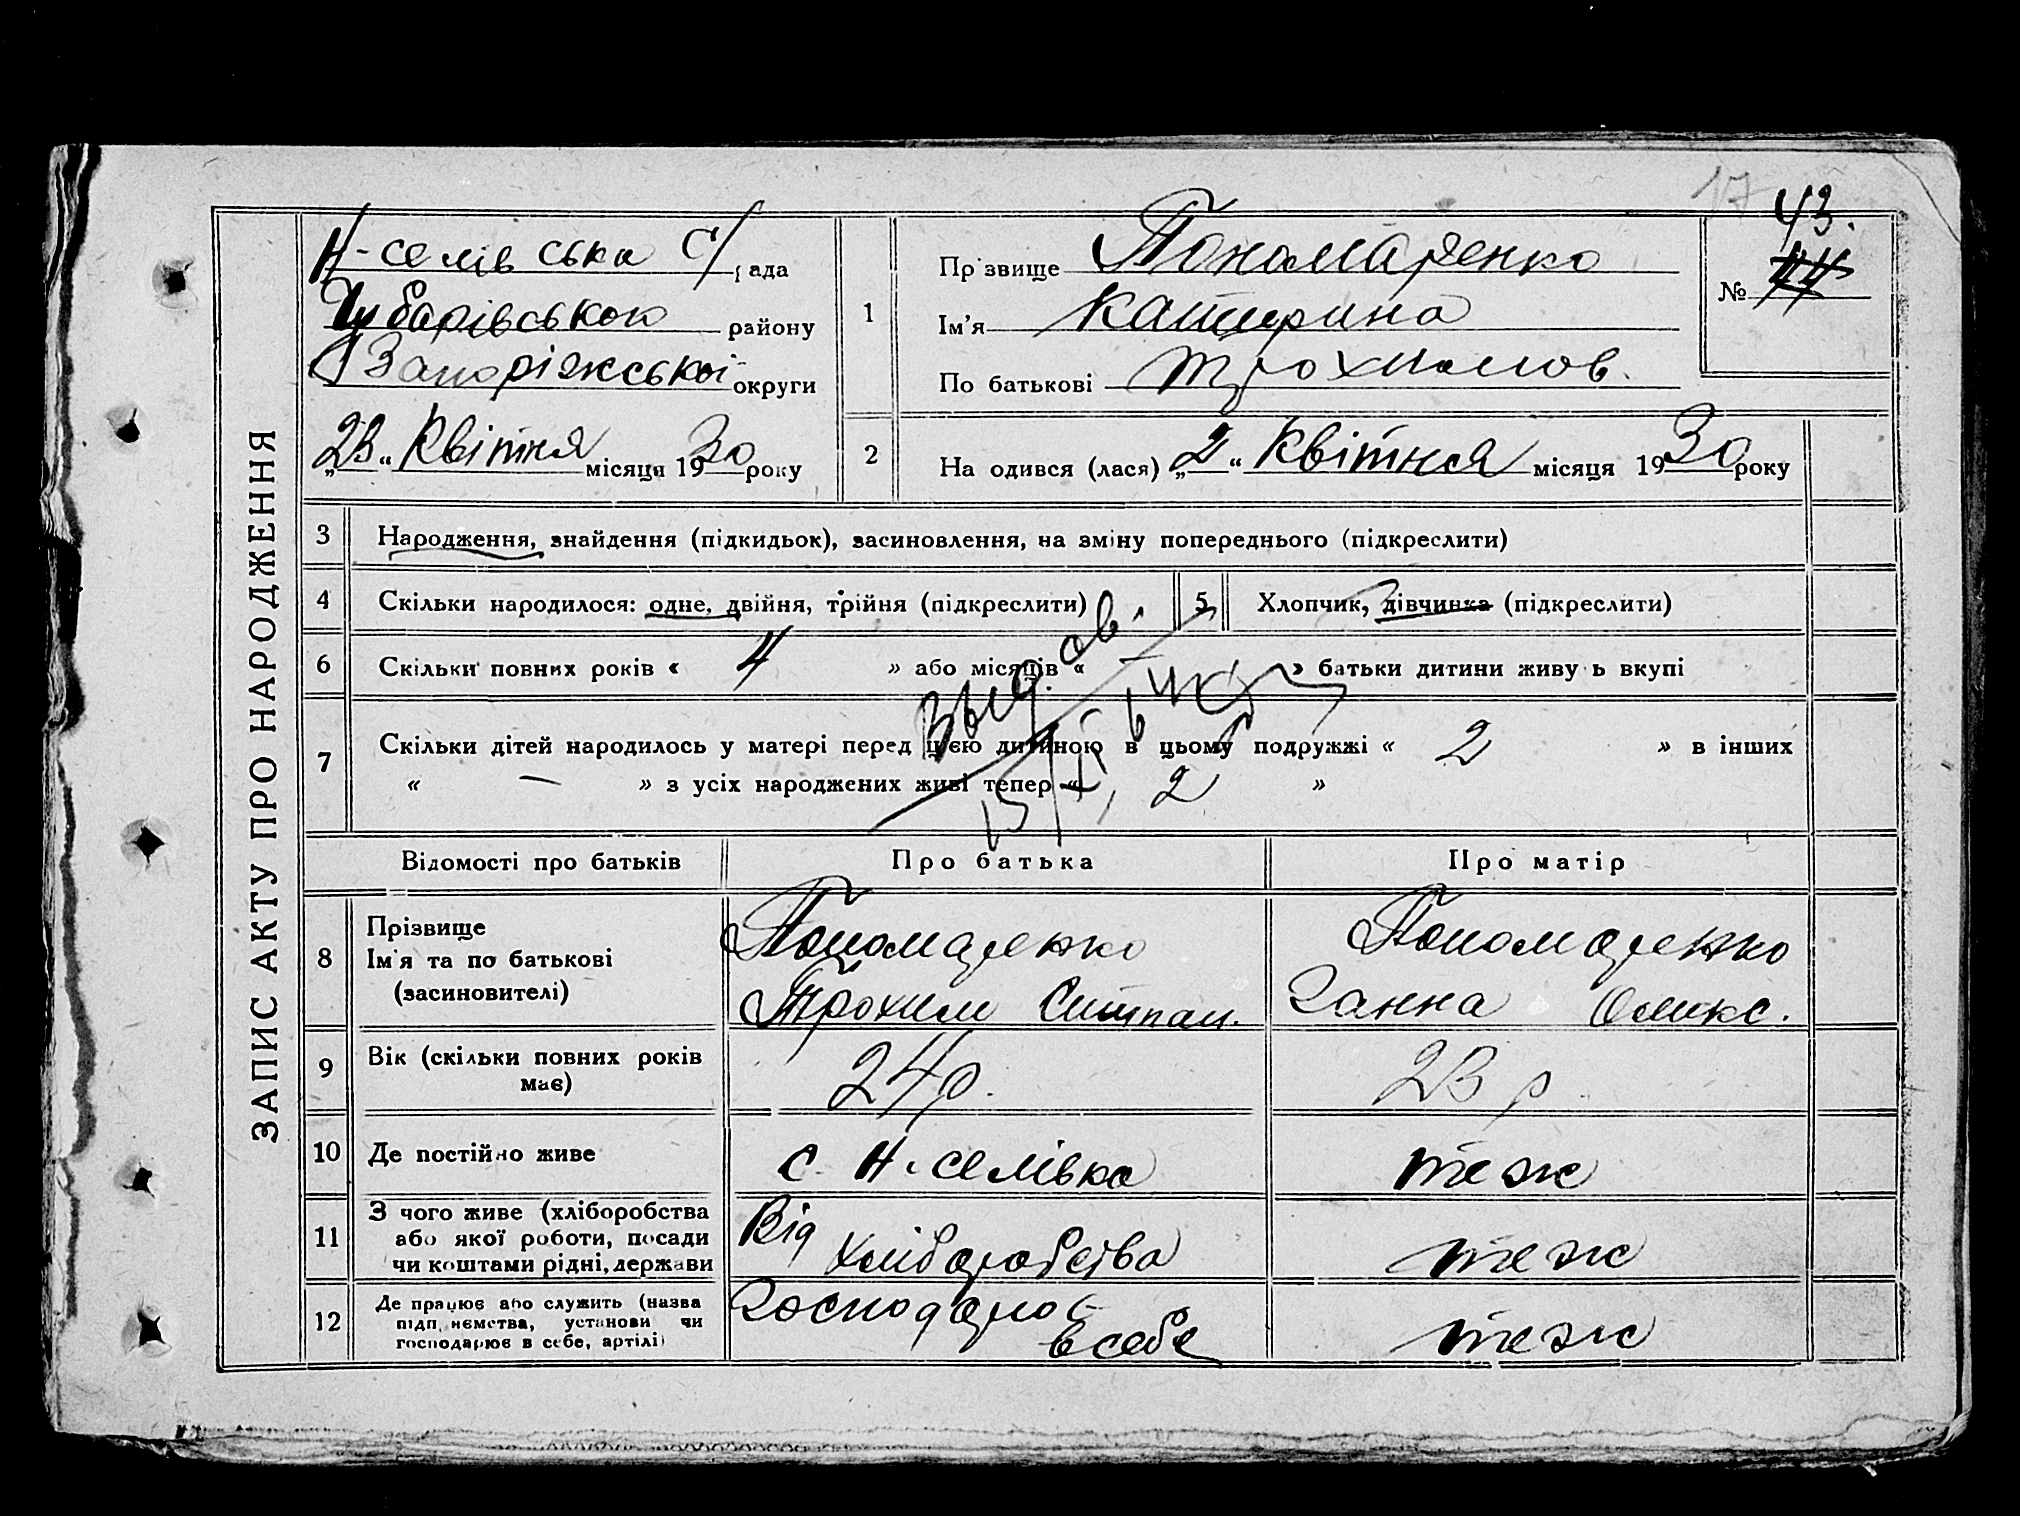 17
43.
ЗАПИС АКТУ ПРО НАРОДЖЕННЯ
Н-селівська С/рада
Чубарівського району
Запоріжської округи
„23“ Квітня місяця 1930 року
1
Прізвище Пономаренко
Ім'я Катерина
По батькові Трохимов.
№ 44
2
На одився (лася) „2“ Квітня місяця 1930 року
3 Народження, знайдення (підкидьок), засиновлення, на зміну попереднього (підкреслити)
4 Скільки народилося: одне, двійня, трійня (підкреслити) 5 Хлопчик, дівчинка (підкреслити)
6 Скільки повних років « 4 » або місяців « — » батьки дитини живуть вкупі
7 Скільки дітей народилось у матері перед цією дитиною в цьому подружжі « 2 » в інших
« — » з усіх народжених живі тепер « 2 »
Відомості про батьків Про батька Про матір
8 Прізвище
Ім'я та по батькові
(засиновителі)
Пономаренко
Трохим Стпан.
Пономаренко
Ганна Олекс.
9 Вік (скільки повних років має) 24 р. 23 р
10 Де постійно живе с. Н-селівка теж
11 З чого живе (хліборобства
або якої роботи, посади
чи коштами рідні, держави
Від
хліборобства
теж
12 Де працює або служить (назва
підп, немства, установи чи
господарює в себе, артілі)
Господарює
в себе
теж